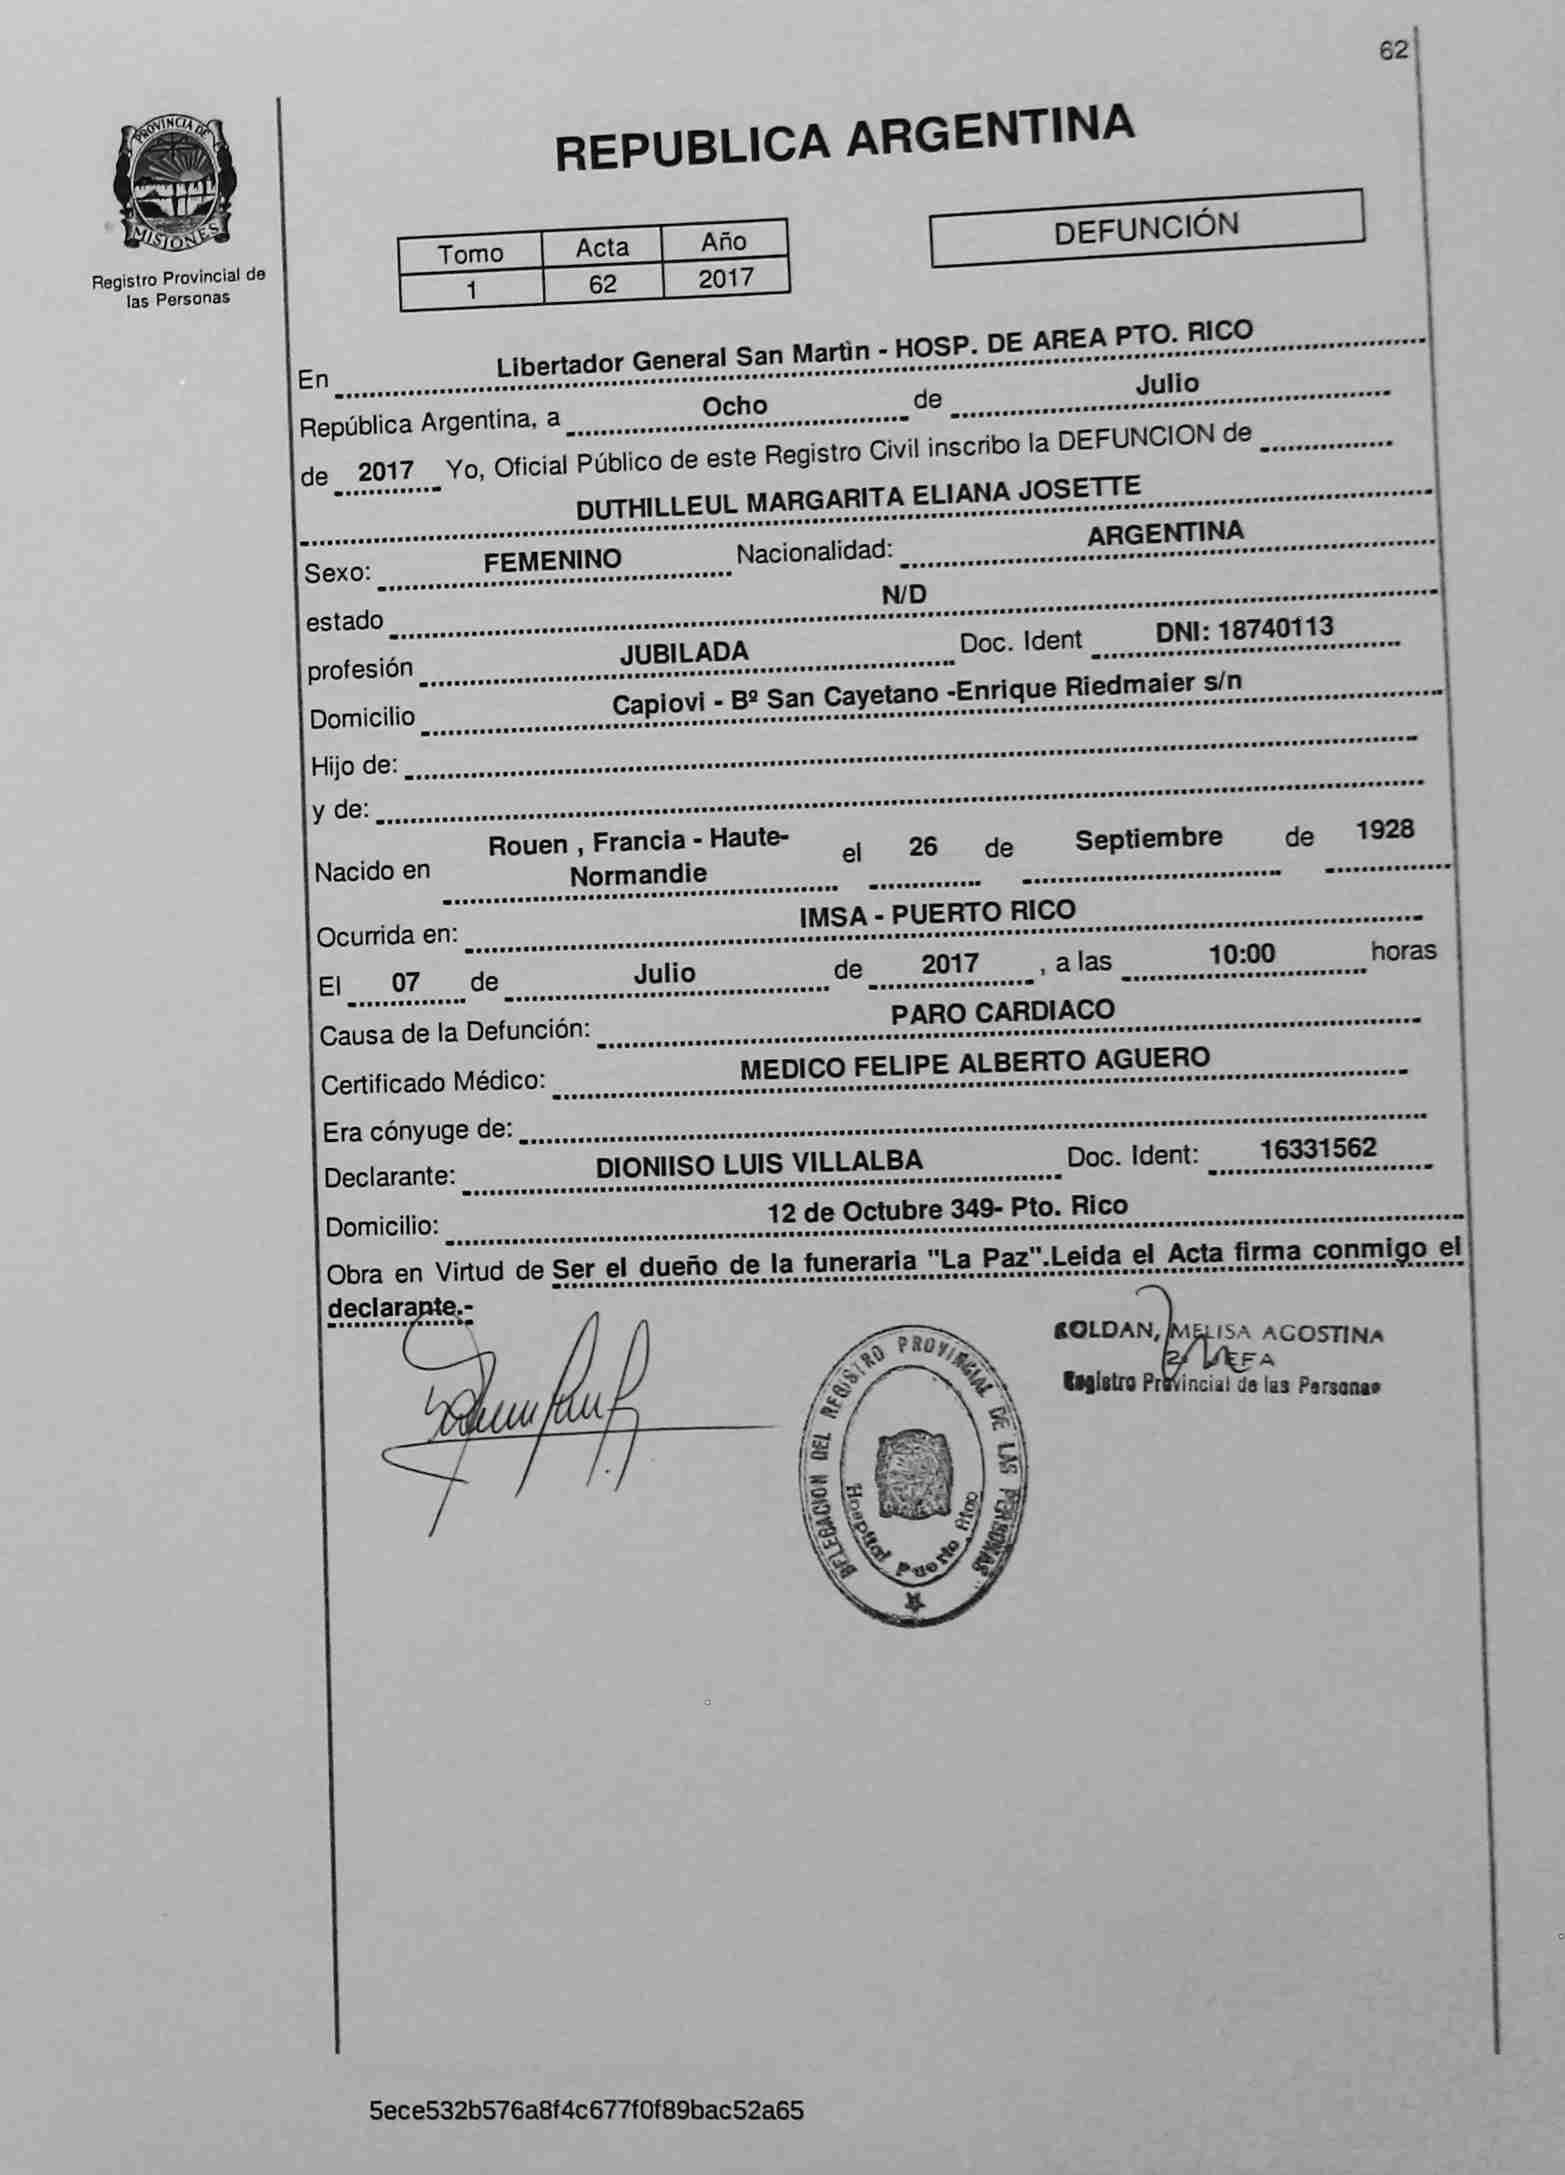 62
PROVINCIA DE
MISIONES
Registro Provincial de
las Personas
REPUBLICA ARGENTINA
DEFUNCIÓN
Tomo Acta Año
1 62 2017
En Libertador General San Martìn - HOSP. DE AREA PTO. RICO
República Argentina, a Ocho de Julio
de 2017 Yo, Oficial Público de este Registro Civil inscribo la DEFUNCION de
DUTHILLEUL MARGARITA ELIANA JOSETTE
Sexo: FEMENINO Nacionalidad: ARGENTINA
estado N/D
profesión JUBILADA Doc. Ident DNI: 18740113
Domicilio Capiovi - Bº San Cayetano -Enrique Riedmaier s/n
Hijo de:
y de:
Nacido en Rouen , Francia - Haute-Normandie el 26 de Septiembre de 1928
Ocurrida en: IMSA - PUERTO RICO
El 07 de Julio de 2017 , a las 10:00 horas
Causa de la Defunción: PARO CARDIACO
Certificado Médico: MEDICO FELIPE ALBERTO AGUERO
Era cónyuge de:
Declarante: DIONIISO LUIS VILLALBA Doc. Ident: 16331562
Domicilio: 12 de Octubre 349- Pto. Rico
Obra en Virtud de Ser el dueño de la funeraria "La Paz".Leida el Acta firma conmigo el
declarante.-
ROLDAN, MELISA AGOSTINA
2º JEFA
Registro Provincial de las Personas
DELEGACION DEL REGISTRO PROVINCIAL DE LAS PERSONAS
Hospital Puerto Rico
5ece532b576a8f4c677f0f89bac52a65